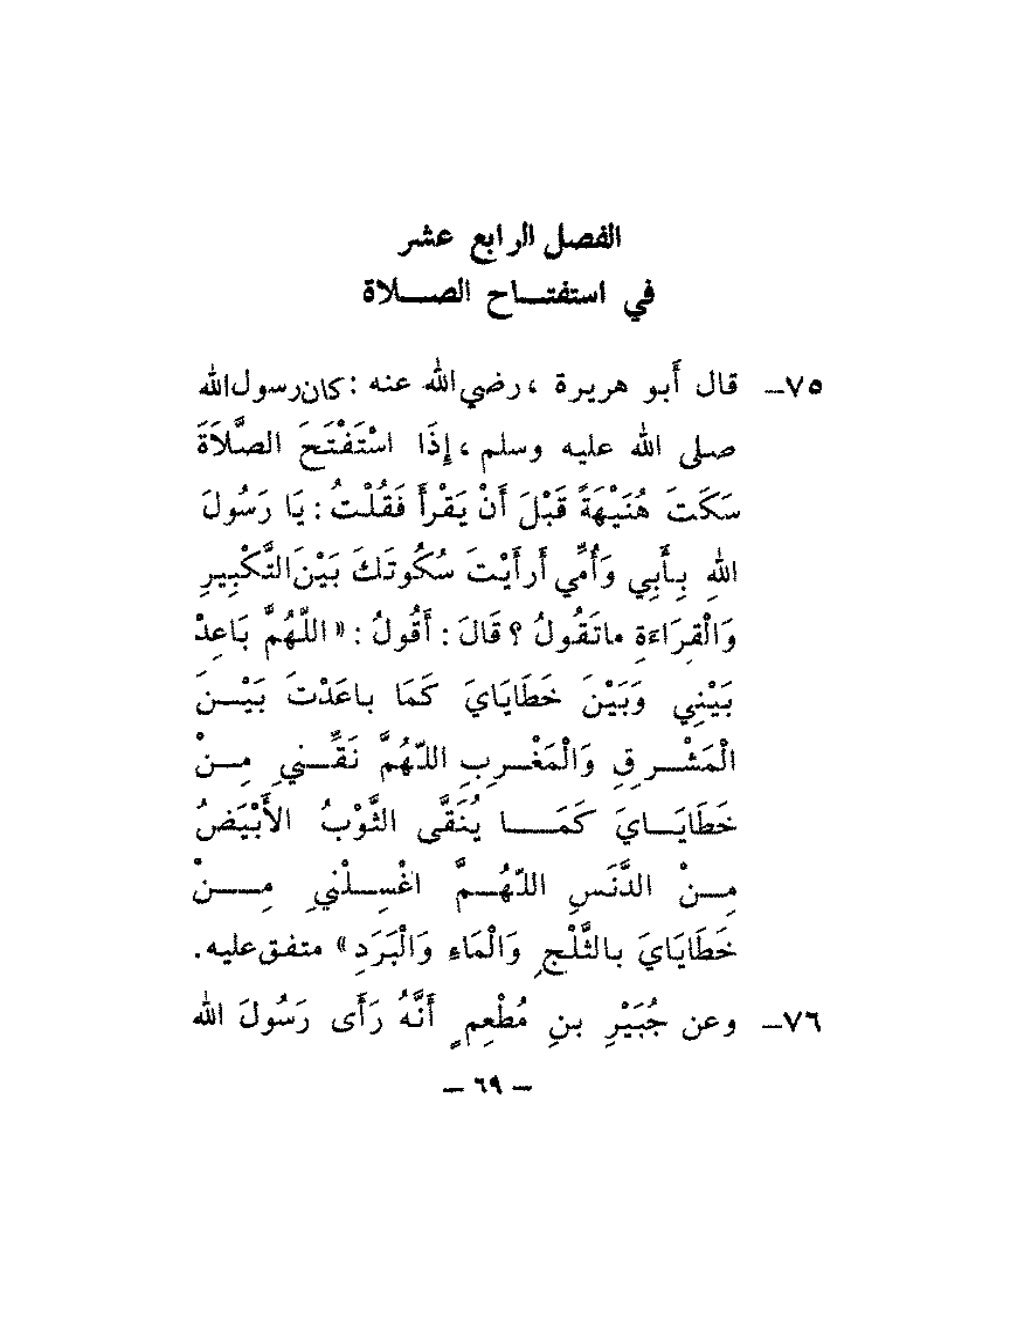 الفصل الرابع عشر
في استفتـــاح الصـــلاة
٧٥ــ قال أَبو هريرة ، رضي الله عنه : كان رسول الله
صلى الله عليه وسلم ، إِذَا اسْتَفْتَحَ الصَّلاَةَ
سَكَتَ هُنَيْهَةً قَبْلَ أَنْ يَقْرأَ فَقُلْتُ : يَا رَسُولَ
اللهِ بِأَبِي وَأُمِّي أَرأَيْتَ سُكُوتَكَ بَيْنَ التَّكْبِيرِ
وَالْقِرَاءَةِ ماتَقُولُ ؟ قَالَ : أَقُولُ : « اللَّهُمَّ بَاعِدْ
بَيْنِي وَبَيْنَ خَطَايَايَ كَمَا باعَدْتَ بَيْــنَ
الْمَشْــرِقِ وَالْمَغْــرِبِ اللهُمَّ نَقِّــنِي مِــنْ
خَطَايَــايَ كَمَــــا يُنَقَّى الثَّوْبُ الأَبْيَضُ
مِــنْ الدَّنَسِ اللهُــمَّ اغْسِــلْنِي مِــــنْ
خَطَايَايَ بالثَّلْجِ وَالْمَاءِ وَالْبَرَدِ » متفق عليه .
٧٦ــ وعن جُبَيْرِ بنِ مُطْعِمٍ أَنَّهُ رَأَى رَسُولَ الله
ــ ٦٩ ــ